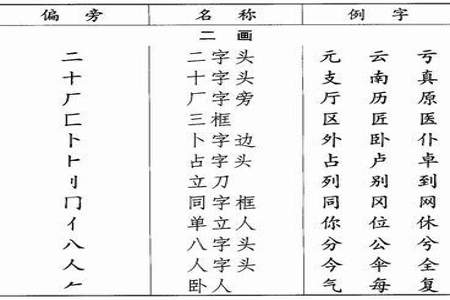 偏旁 名称 例字
二画
二 二字头 元 云 亏
十 十字头 支 南 真
厂 厂字旁 厅 历 原
匚 三框 区 匠 医
卜 卜字边 外 卧 仆
⺊ 占字头 占 卢 卓
刂 立刀 列 别 到
冂 同字框 同 冈 网
亻 单立人 你 位 休
八 八字头 分 公 兮
人 人字头 今 伞 全
𠂉 卧人 气 每 复